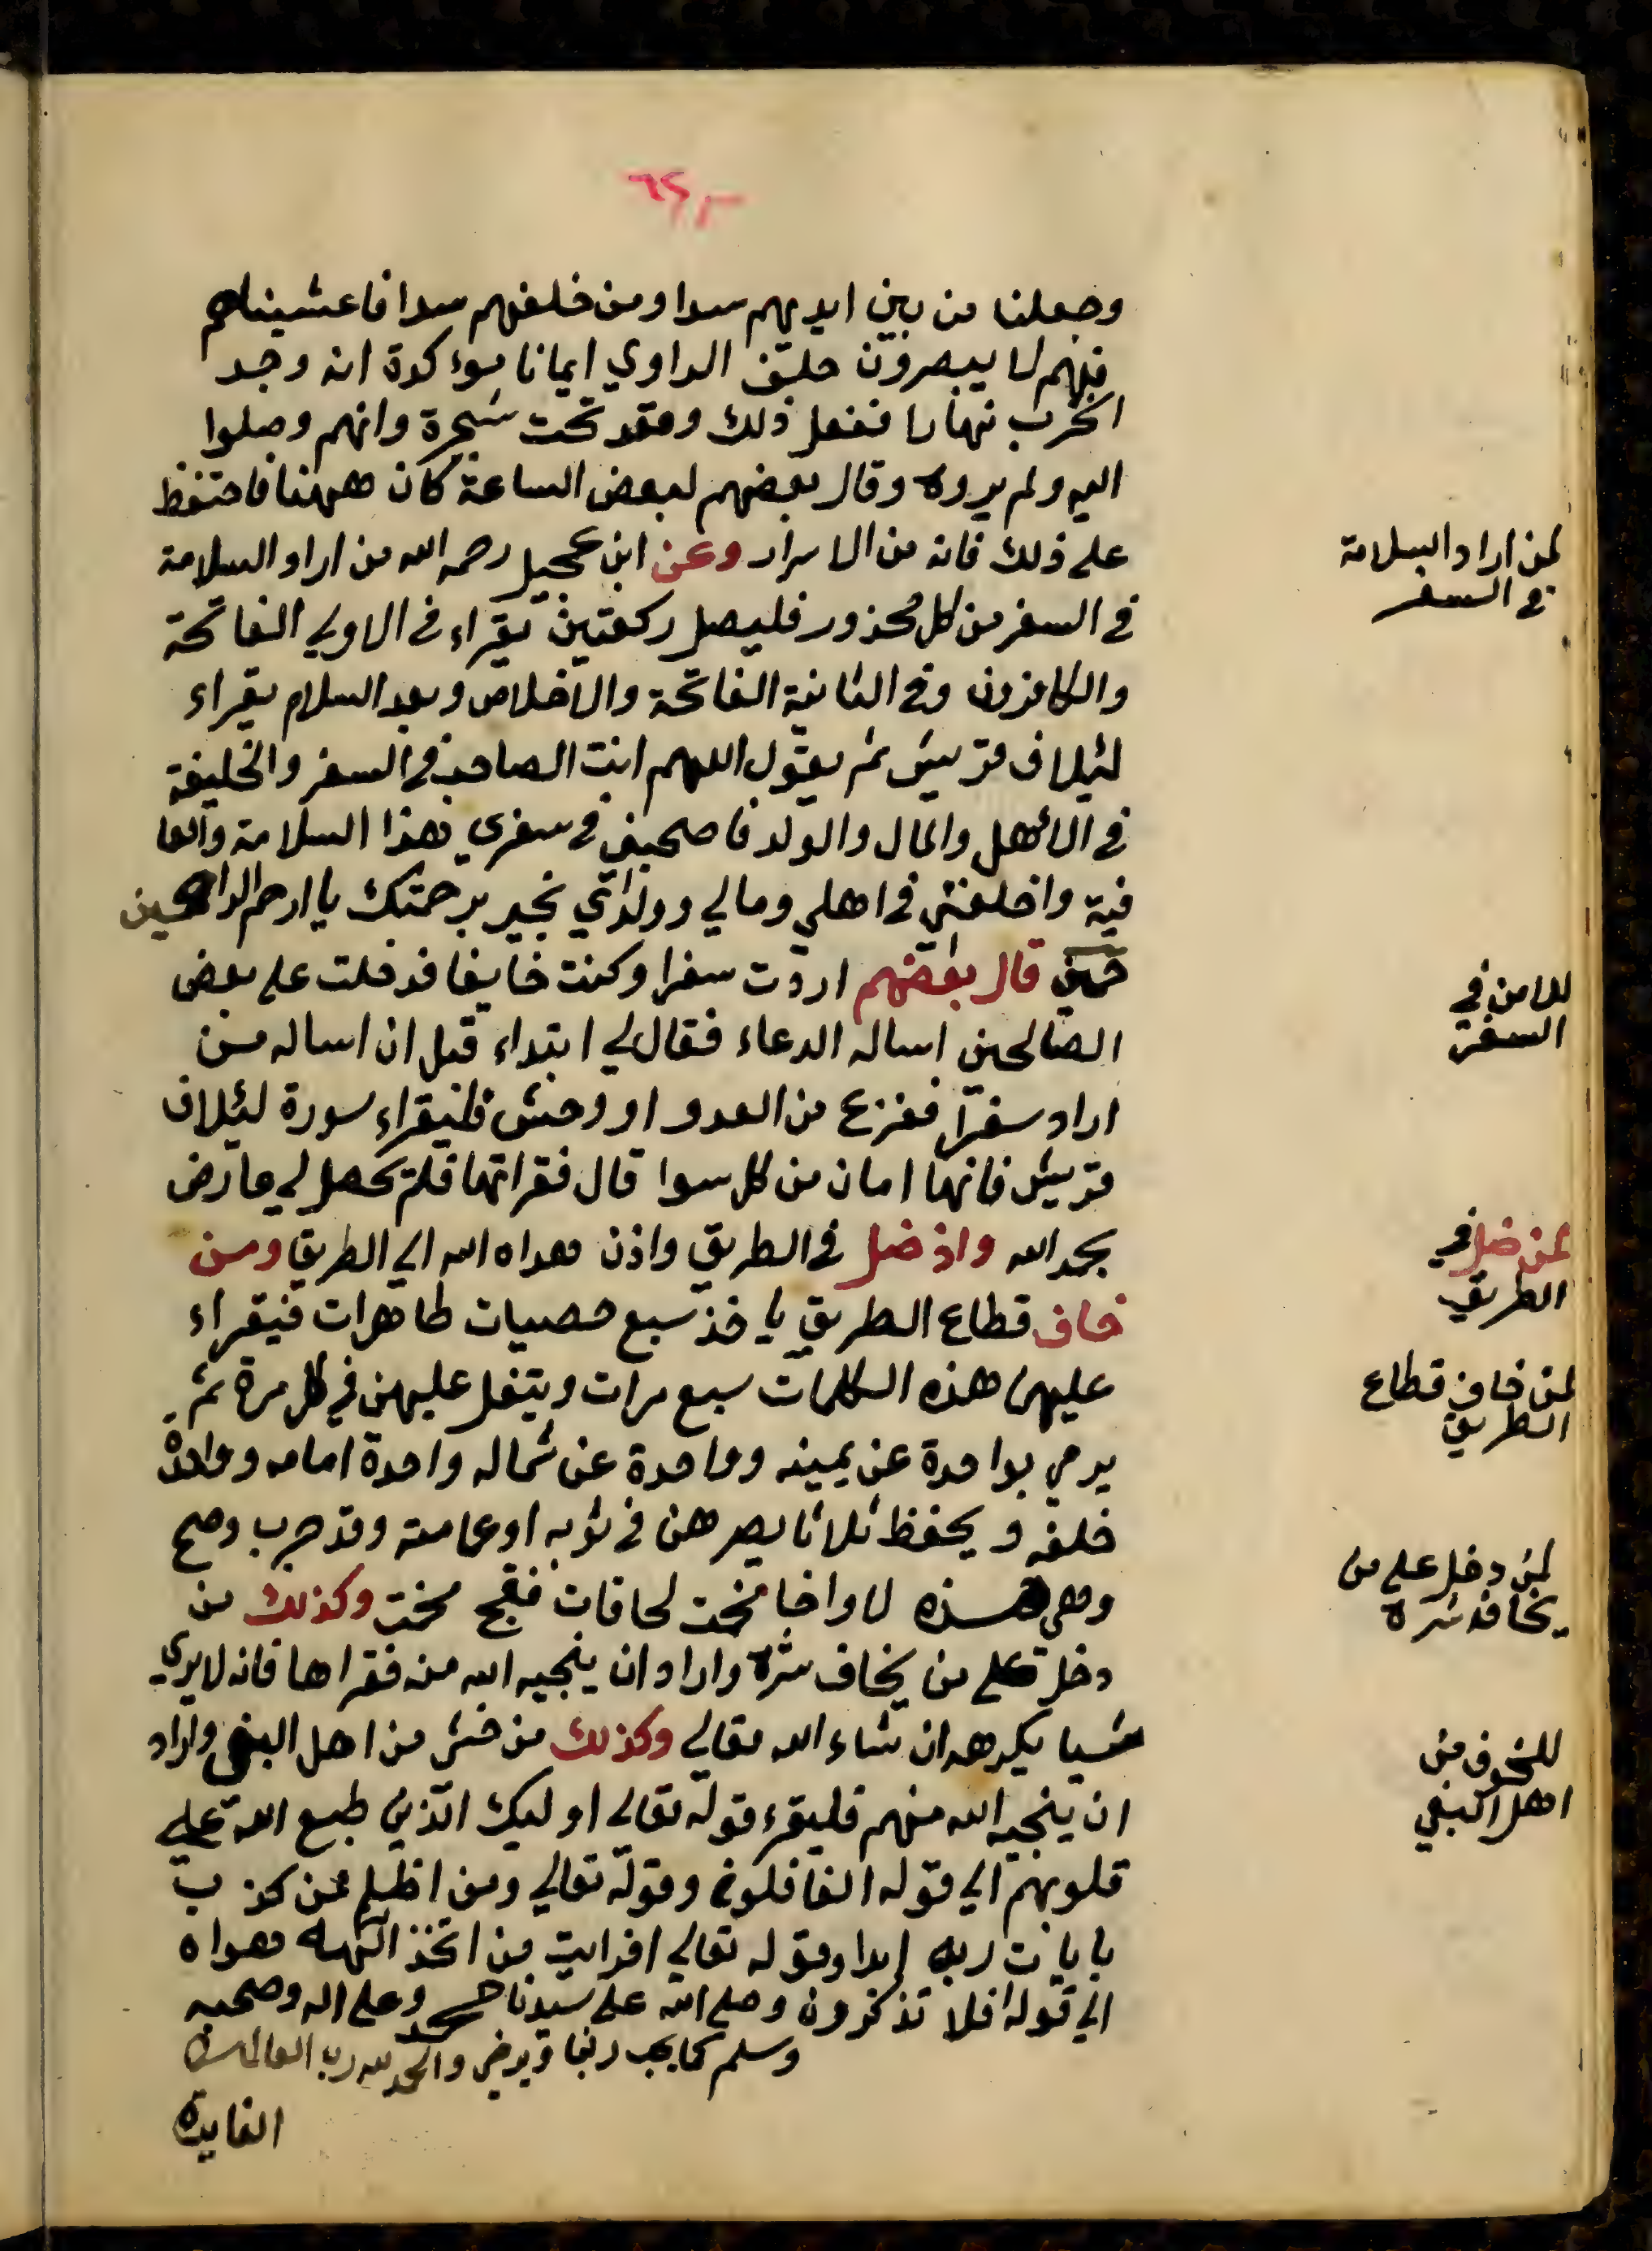 ٦٢
وجعلنا من بين ايديهم سدا ومن خلفهم سدا فاغشيناهم
فهم لا يبصرون حلف الراوي ايمانا موءكدة انه وجد
الحرب نهارا ففعل ذلك وقعد تحت شجرة وانهم وصلوا
اليه ولم يروه وقال بعضهم لبعض الساعة كان ههنا فاحتفظ
على ذلك فانه من الاسرار وعن ابن عجيل رحمه الله من اراد السلامة
في السفر من كل محذور فليصل ركعتين يقراء في الاولى الفاتحة
والكافرون وفي الثانية الفاتحة والاخلاص وبعد السلام يقراء
لئيلاف قريش ثم يقول اللهم انت الصاحب في السفر والخليفة
في الاهل والمال والولد فاصحبني في سفري هذا السلامة والعا
فية واخلفني في اهلي ومالي وولدي بخير برحمتك يا ارحم الراحمين
قال بعضهم اردت سفرا وكنت خايفا فدخلت على بعض
الصالحين اساله الدعاء فقال لي ابتداء قبل ان اساله من
اراد سفرا ففزع من العدو او وحش فليقراء سورة لئيلاف
قريش فانها امان من كل سوا قال فقراتها فلم يحصل لي عارض
بحمد الله واذ ضل في الطريق واذن هداه الله الي الطريق ومن
خاف قطاع الطريق ياخذ سبع حصيات طاهرات فيقراء
عليهن هذه الكلمات سبع مرات ويتفل عليهن في كل مرة ثم
يرمي بواحدة عن يمينه وواحدة عن شماله واحدة امامه وواحدة
خلفه ويحفظ ثلاثا يصرهن في ثوبه او عمامته وقد جرب وصح
وهي هذه وكذلك من
دخل على من يخاف شره واراد ان ينجيه الله من فقراها فانه لا يري
شيا يكرهه ان شاء الله تعالي وكذلك من خشى من اهل البغي واراد
ان ينجيه الله منهم فليقرء قوله تعالى اوليك الذين طبع الله على
قلوبهم الي قوله الغافلون وقوله تعالي ومن اظلم ممن كذب
بايات ربه ابدا وقوله تعالي افرايت من اتخذ الهه هواه
الي قوله افلا تذكرون وصلى الله على سيدنا محمد وعلى اله وصحبه
وسلم كما يحب ربنا ويرضى والحمد لله رب العالمين
الفايدة
لمن اراد السلامة
في السفر
للامن في
السفر
لمن ضل في
الطريق
لمن خاف قطاع
الطريق
لمن دخل على من
يخاف شره
للخوف من
اهل البغي